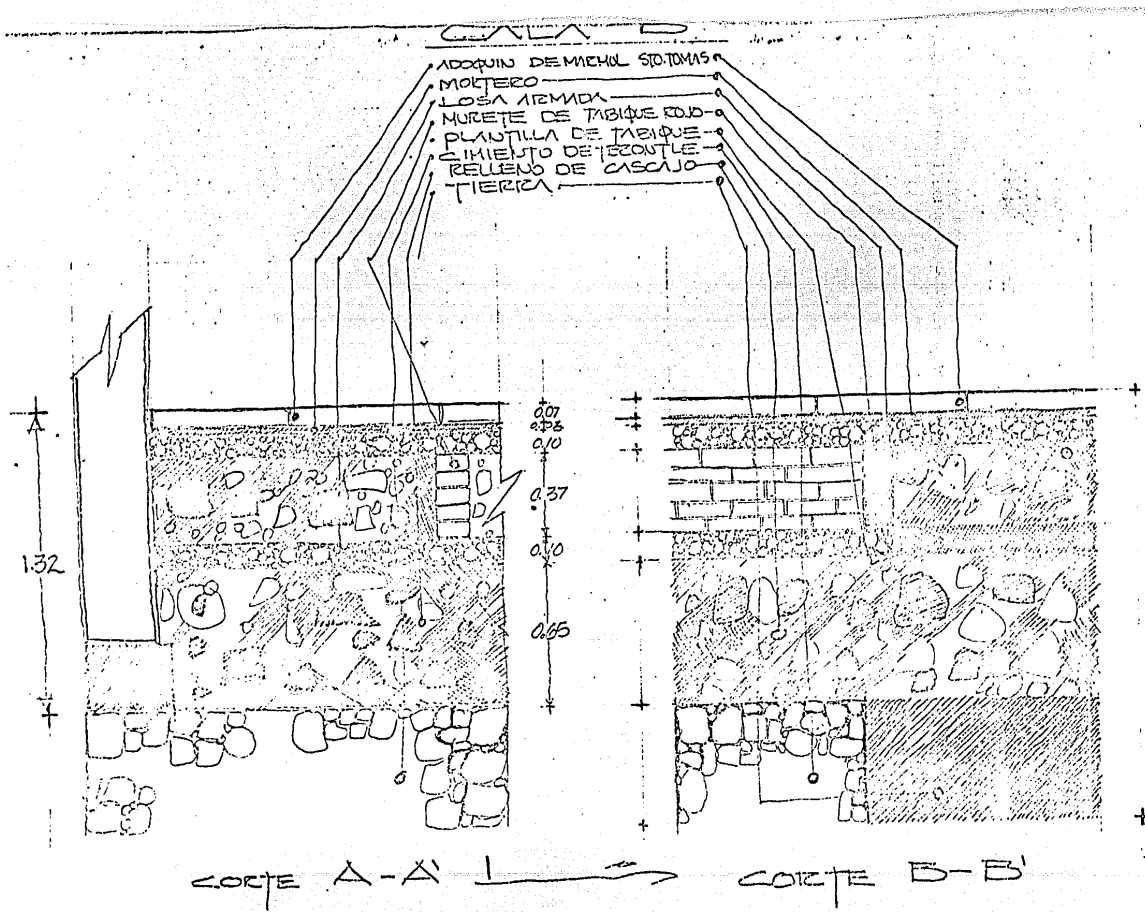 CALA D
ADOQUIN DE MARMOL STO. TOMAS
MORTERO
LOSA ARMADA
MURETE DE TABIQUE ROJO
PLANTILLA DE TABIQUE
CIMIENTO DE TEZONTLE
RELLENO DE CASCAJO
TIERRA
0.07
0.03
0.10
0.37
0.10
0.65
1.32
CORTE A-A'
CORTE B-B'